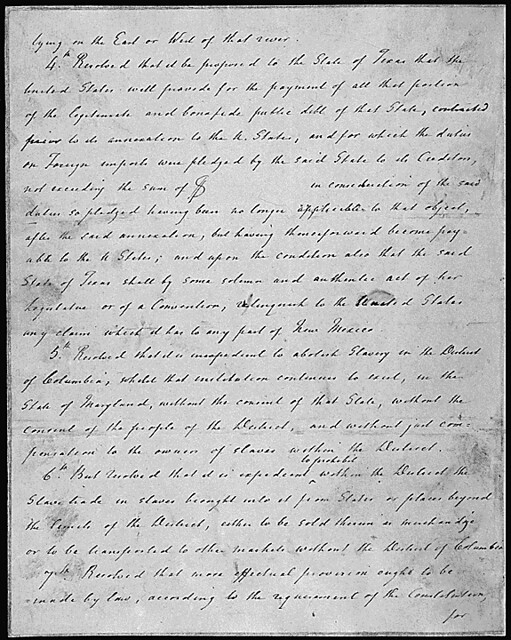 lying on the East or West of that river.
4th Resolved that it be proposed to the State of Texas that the
United States will provide for the payment of all that portion
of the legitimate and bonafide public debt of that State, contracted
prior to its annexation to the U. States, and for which the duties
on Foreign imports were pledged by the said State to its Creditors,
not exceeding the sum of $ in consideration of the said
duties so pledged having been no longer applicable to that object,
after the said annexation, but having thenceforward become pay-
able to the U States; and upon the condition also that the said
State of Texas shall by some solemn and authentic act of her
Legislature or of a Convention, relinquish to the United States
any claim which it has to any part of New Mexico.
5th Resolved that it is inexpedient to abolish Slavery in the District
of Columbia, whilst that institution continues to exist, in the
State of Maryland, without the consent of that State, without the
consent of the people of the District, and without just com-
pensation to the owners of slaves within the District.
6th But resolved that it is expedient to prohibit within the District the
Slave trade in slaves brought into it from States or places beyond
the limits of the District, either to be sold therein as merchandize
or to be transported to other markets without the District of Columbia
7th Resolved that more effectual provision ought to be
made by law, according to the requirement of the Constitution,
for